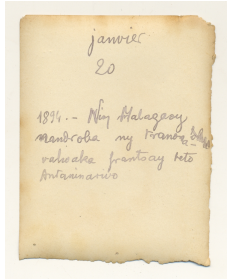 janvier
20
1894. - Niny Malagasy
nandroba ny tranon'ny
vahoaka frantsay teto
Antaninarivo